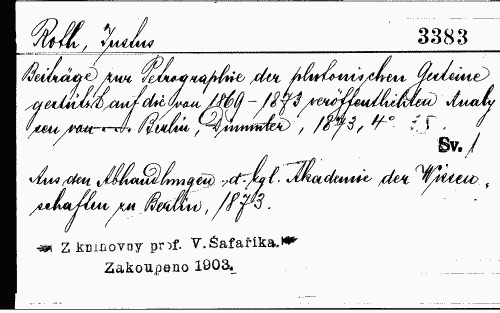 Roth, Justus
3383
Beiträge zur Petrographie der plutonischen Gesteine
gestützt auf die von 1869-1873 veröffentlichten Analy
sen von .... Berlin, Dümmler, 1873, 4°
Sv. 1
Aus den Abhandlungen d. kgl. Akademie der Wissen,
schaften zu Berlin, 1873.
Z knihovny prof. V. Šafaříka.
Zakoupeno 1903.